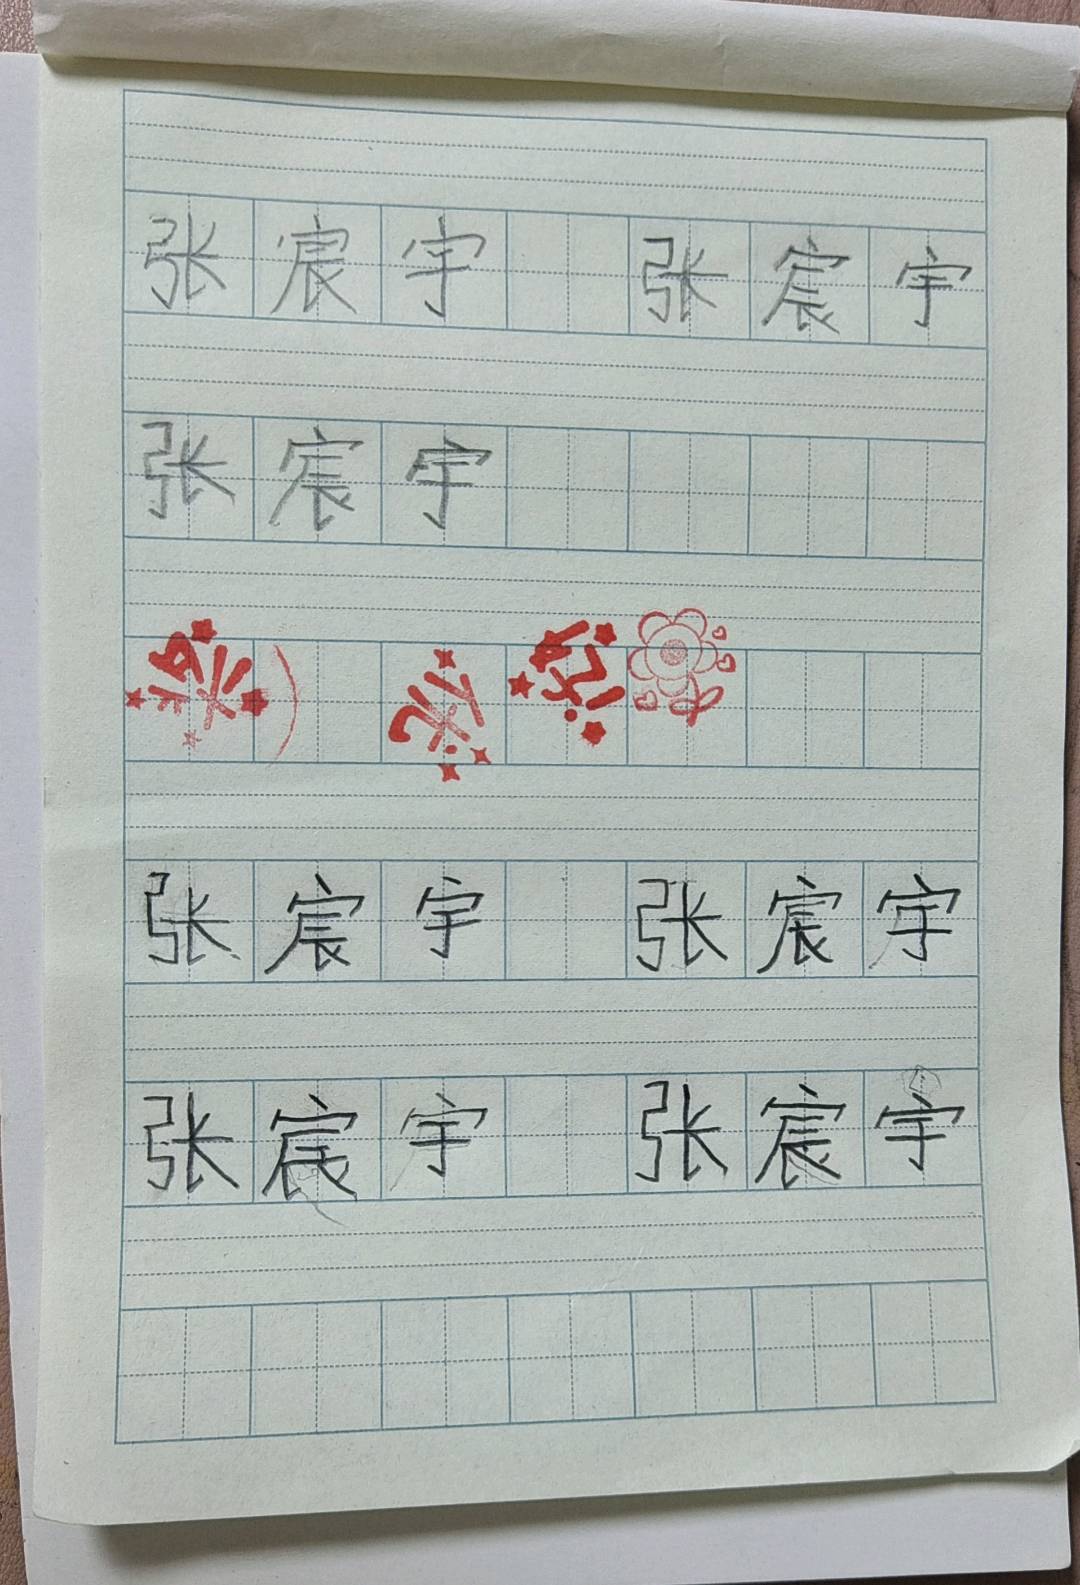 张宸宇 张宸宇
张宸宇
张宸宇 张宸宇
张宸宇 张宸宇